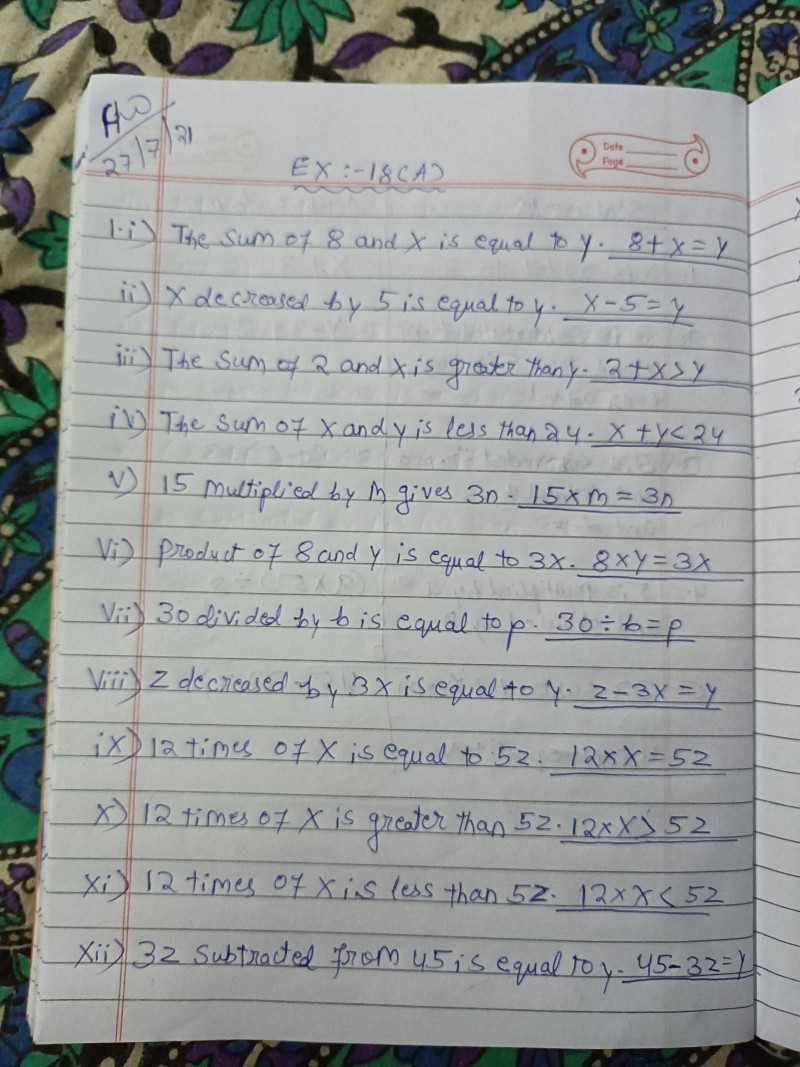 HW
27/7/21
Date
Page
EX :- 18(A)
1.i) The sum of 8 and x is equal to y. 8+x=y
ii) x decreased by 5 is equal to y. x-5=y
iii) The sum of 2 and x is greater than y. 2+x>y
iv) The sum of x and y is less than 24. x+y<24
v) 15 multiplied by m gives 3n. 15×m=3n
vi) product of 8 and y is equal to 3x. 8×y=3x
vii) 30 divided by b is equal to p. 30÷b=p
viii) z decreased by 3x is equal to y. z-3x=y
ix) 12 times of x is equal to 5z. 12×x=5z
x) 12 times of x is greater than 5z. 12×x>5z
xi) 12 times of x is less than 5z. 12×x<5z
xii) 3z subtracted from 45 is equal to y. 45-3z=y